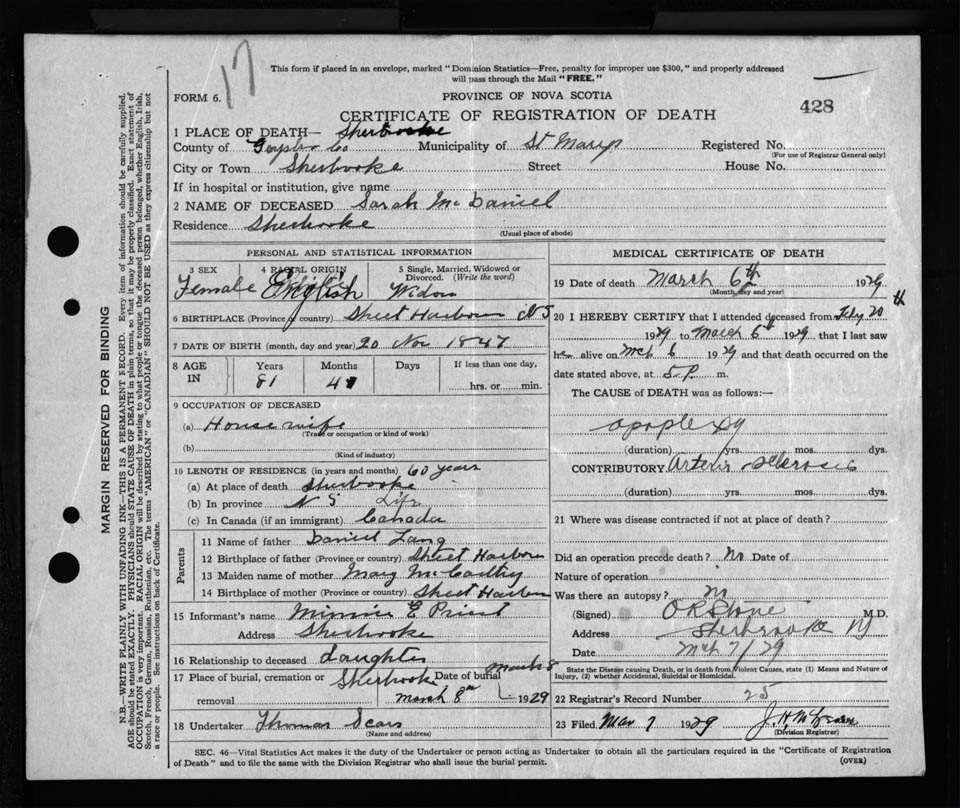 17
This form if placed in an envelope, marked "Dominion Statistics—Free, penalty for improper use $300," and properly addressed
will pass through the Mail "FREE."
FORM 6.
PROVINCE OF NOVA SCOTIA
428
CERTIFICATE OF REGISTRATION OF DEATH
1 PLACE OF DEATH— Sherbrooke
County of Guysboro Co Municipality of St Marys Registered No.
(For use of Registrar General only)
City or Town Sherbrooke Street House No.
If in hospital or institution, give name
2 NAME OF DECEASED Sarah McDaniel
Residence Sherbrooke
(Usual place of abode)
PERSONAL AND STATISTICAL INFORMATION
3 SEX 4 RACIAL ORIGIN 5 Single, Married, Widowed or
Divorced. (Write the word)
Female English Widow
6 BIRTHPLACE (Province or country) Sheet Harbour N S
7 DATE OF BIRTH (month, day and year) 20 Nov 1847
8 AGE IN Years Months Days If less than one day,
81 4 hrs. or min.
9 OCCUPATION OF DECEASED
(a) House wife
(Trade or occupation or kind of work)
(b)
(Kind of industry)
10 LENGTH OF RESIDENCE (in years and months) 60 years
(a) At place of death Sherbrooke
(b) In province N S Life
(c) In Canada (if an immigrant) Canada
Parents
11 Name of father Daniel Lang
12 Birthplace of father (Province or country) Sheet Harbour
13 Maiden name of mother Mary McCarthy
14 Birthplace of mother (Province or country) Sheet Harbour
15 Informant's name Minnie E Priest
Address Sherbrooke
16 Relationship to deceased daughter
17 Place of burial, cremation or Sherbrooke Date of burial March 8
removal March 8th 1929
18 Undertaker Thomas Sears
(Name and address)
MEDICAL CERTIFICATE OF DEATH
19 Date of death March 6th 1929
(Month, day and year)
20 I HEREBY CERTIFY that I attended deceased from Feby 20th
1929 to March 6th 1929, that I last saw
he alive on Mch 6 1929 and that death occurred on the
date stated above, at 5 P. m.
The CAUSE of DEATH was as follows:—
apoplexy
(duration) yrs. mos. dys.
CONTRIBUTORY Arterio sclerosis
(duration) yrs. mos. dys.
21 Where was disease contracted if not at place of death?
Did an operation precede death? No Date of
Nature of operation
Was there an autopsy? No
(Signed) M.D.
Address Sherbrooke
Date Mch 7/29
State the Disease causing Death, or in death from Violent Causes, state (1) Means and Nature of
Injury, (2) whether Accidental, Suicidal or Homicidal.
22 Registrar's Record Number 25
23 Filed Mar 7 1929
(Division Registrar)
SEC. 46—Vital Statistics Act makes it the duty of the Undertaker or person acting as Undertaker to obtain all the particulars required in the "Certificate of Registration
of Death" and to file the same with the Division Registrar who shall issue the burial permit.
(OVER)
MARGIN RESERVED FOR BINDING
N.B.—WRITE PLAINLY WITH UNFADING INK—THIS IS A PERMANENT RECORD. Every item of information should be carefully supplied.
AGE should be stated EXACTLY. PHYSICIANS should STATE CAUSE OF DEATH in plain terms, so that it may be properly classified. Exact statement of
OCCUPATION is very important. RACIAL ORIGIN will be described by stating to what people or tongue the deceased person belonged, whether English, Irish,
Scotch, French, German, Russian, Ruthenian, etc. The terms "AMERICAN" or "CANADIAN" SHOULD NOT BE USED as they express citizenship but not
a race or people. See instructions on back of Certificate.